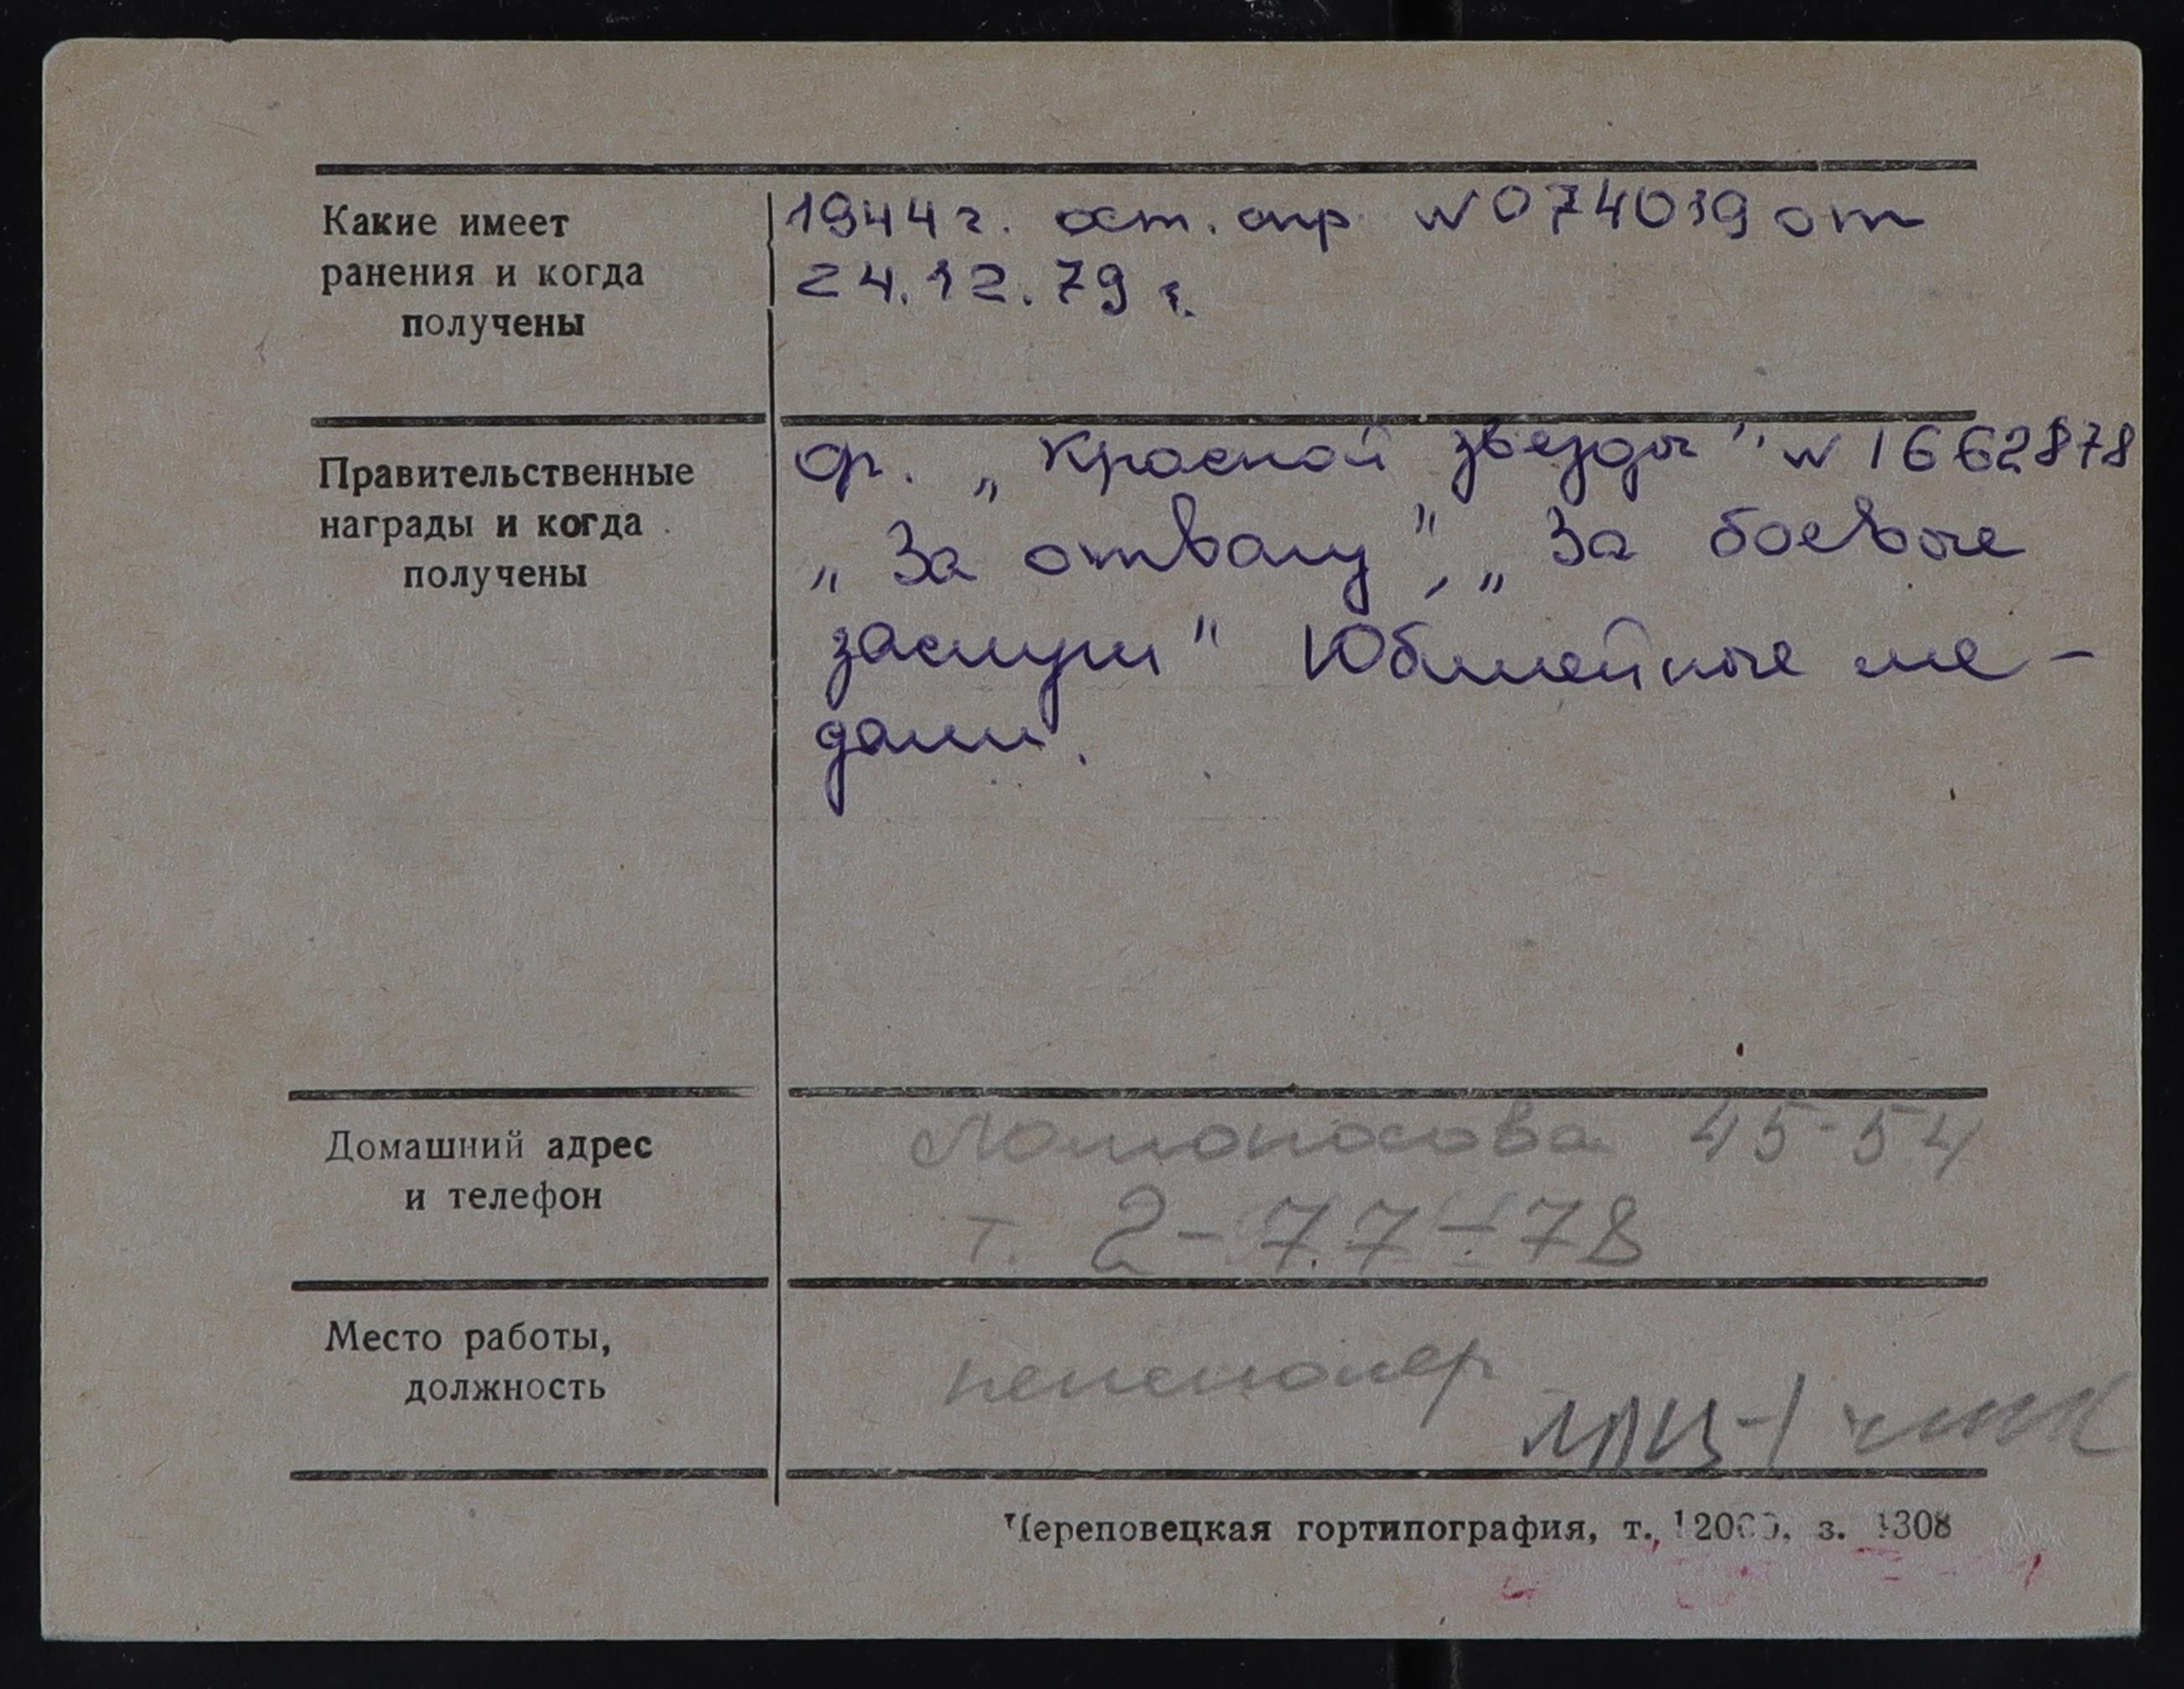 Какие имеет
ранения и когда
получены
1944 г. ост. спр. N 074019 от
24.12.79 г.
Правительственные
награды и когда
получены
ор. „Красной звезды" N 1662878
„За отвагу", „За боевые
заслуги" Юбилейные ме-
дали.
Домашний адрес
и телефон
Ломоносова 45-54
т. 2-77-78
Место работы,
должность
пенсионер
ЛПЦ-1
Череповецкая гортипография, т. 12000. з. 1308